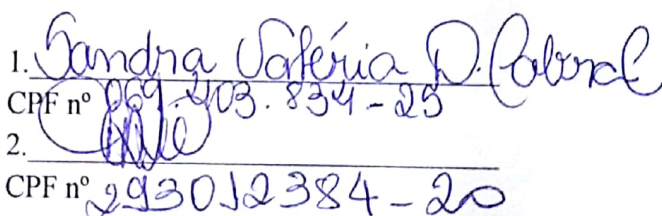 1. Sandra Valéria D. Cabral
CPF nº 069.403.834-25
2.
CPF nº 293012384-20